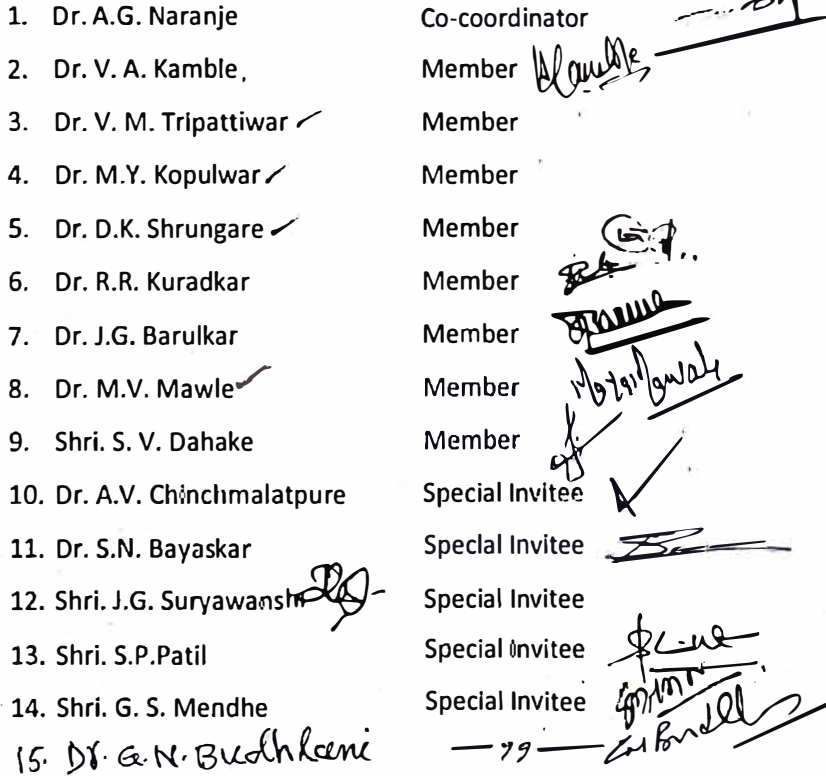 1. Dr. A.G. Naranje Co-coordinator
2. Dr. V. A. Kamble, Member
3. Dr. V. M. Tripattiwar Member
4. Dr. M.Y. Kopulwar Member
5. Dr. D.K. Shrungare Member
6. Dr. R.R. Kuradkar Member
7. Dr. J.G. Barulkar Member
8. Dr. M.V. Mawle Member
9. Shri. S. V. Dahake Member
10. Dr. A.V. Chinchmalatpure Special Invitee
11. Dr. S.N. Bayaskar Special Invitee
12. Shri. J.G. Suryawanshi Special Invitee
13. Shri. S.P.Patil Special Invitee
14. Shri. G. S. Mendhe Special Invitee
15. Dr. G.N. Budhlani